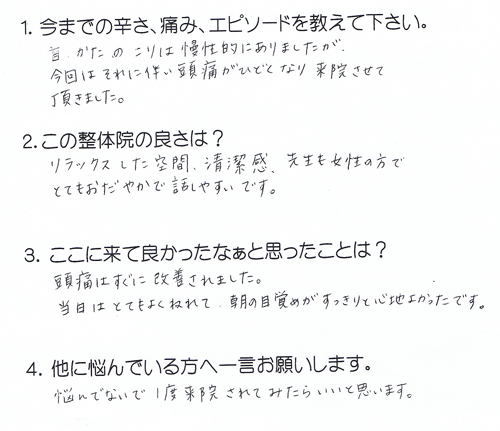 1. 今までの辛さ、痛み、エピソードを教えて下さい。
首、かたのこりは慢性的にありましたが、
今回はそれに伴い頭痛がひどくなり来院させて
頂きました。
2.この整体院の良さは？
リラックスした空間、清潔感、先生も女性の方で
とてもおだやかで話しやすいです。
3. ここに来て良かったなぁと思ったことは？
頭痛はすぐに改善されました。
当日はとてもよくねれて、朝の目覚めがすっきりと心地よかったです。
4. 他に悩んでいる方へ一言お願いします。
悩んでないで1度来院されてみたらいいと思います。